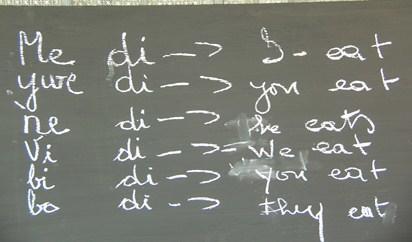 Me di --> I - eat
ywe di --> you eat
ne di --> he eats
Vi di --> we eat
bi di --> you eat
bo di --> they eat